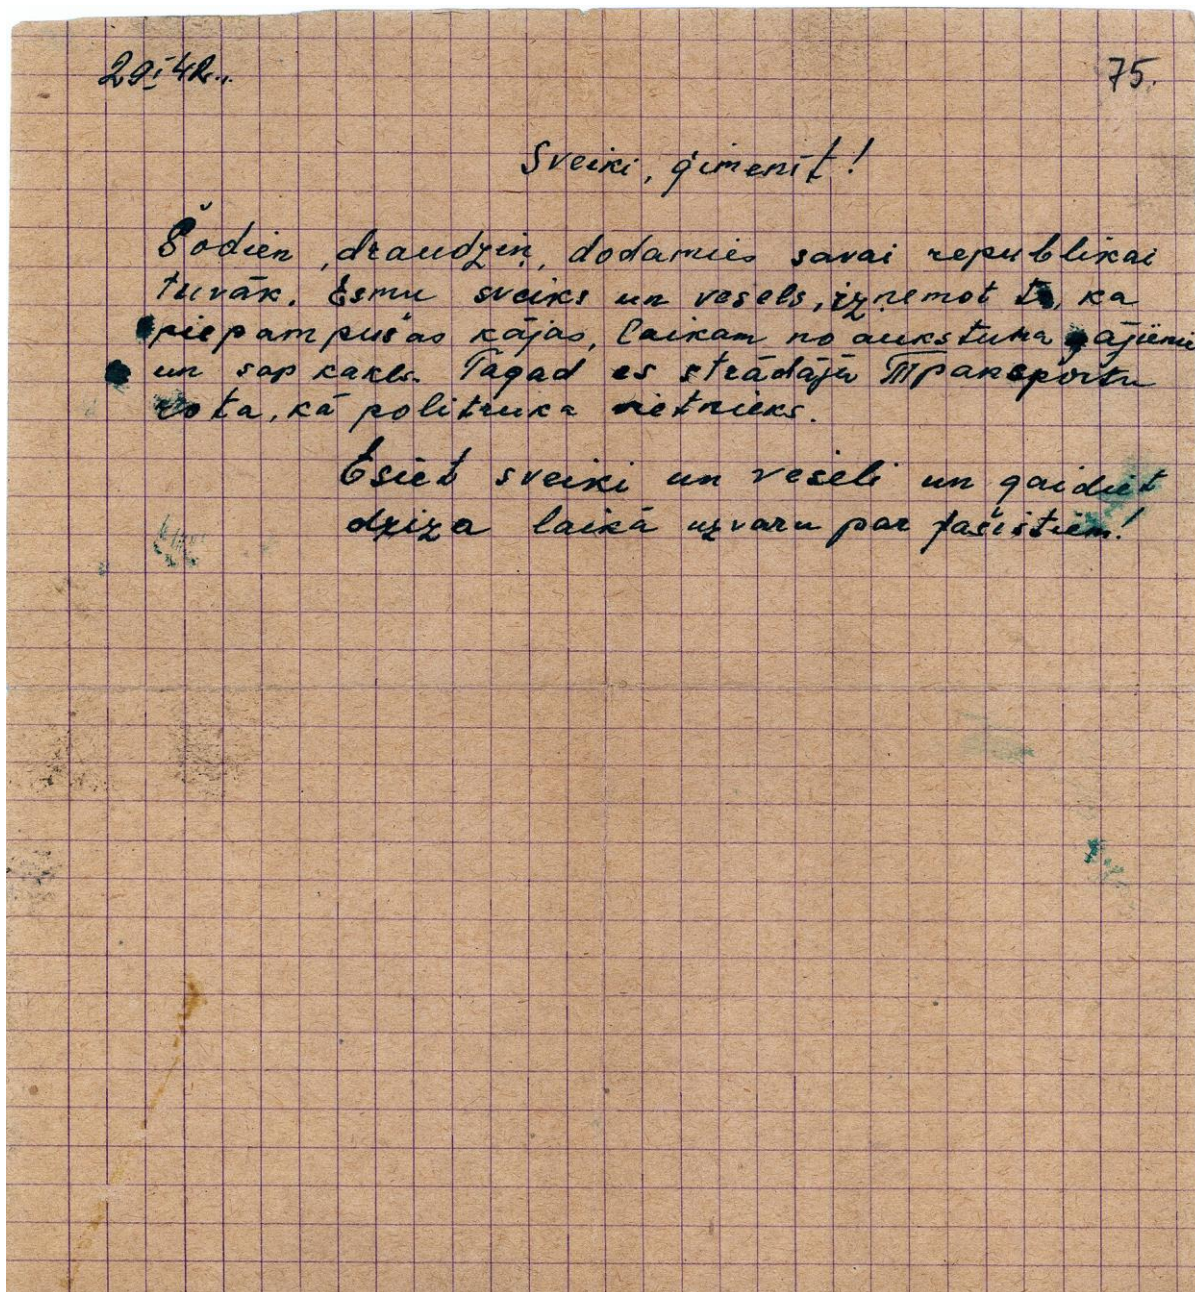 29 I 42..
75.
Sveiki, ģimenīt!
Šodien, draudziņ, dodamies savai republikai
tuvāk. Esmu sveiks un vesels, izņemot to, ka
piepampušas kājas, laikam no aukstuma
un sāp kakls. Tagad es strādāju Transportu
rota, kā politruka vietnieks.
Esiet sveiki un veseli un gaidiet
drīza laikā uzvaru par fašistiem!